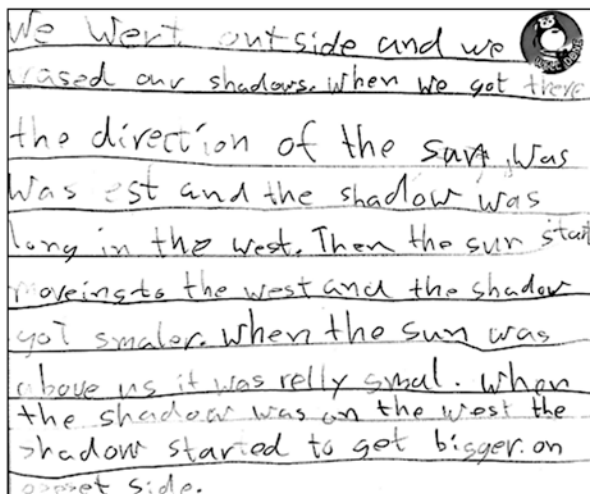 We Went outside and we
rased our shadows. When we got there
the direction of the sun was
was est and the shadow was
long in the west. Then the sun start
moveing to the west and the shadow
got smaler. When the sun was
above us it was relly smal. When
the shadow was on the west the
shadow started to get bigger. on
side.